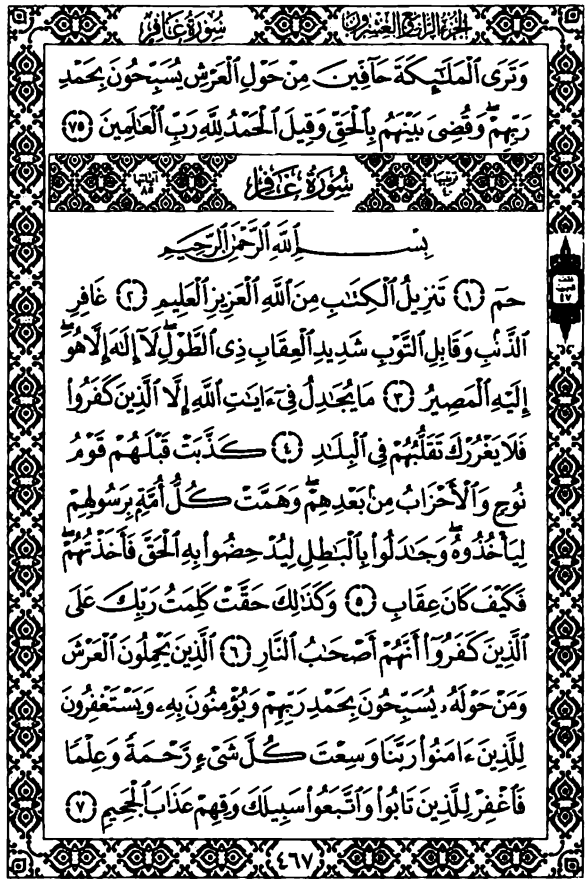 سُورَةُ غَافِرٍ الجُزْءُ الرَّابِعُ وَالعِشْرُونَ
وَتَرَى الْمَلَٰٓئِكَةَ حَآفِّينَ مِنْ حَوْلِ الْعَرْشِ يُسَبِّحُونَ بِحَمْدِ
رَبِّهِمْ ۖ وَقُضِيَ بَيْنَهُم بِالْحَقِّ وَقِيلَ الْحَمْدُ لِلَّهِ رَبِّ الْعَٰلَمِينَ ﴿٧٥﴾
سُورَةُ غَافِرٍ
آياتها ٨٥
بِسْمِ اللَّهِ الرَّحْمَٰنِ الرَّحِيمِ
حمٓ ﴿١﴾ تَنزِيلُ الْكِتَٰبِ مِنَ اللَّهِ الْعَزِيزِ الْعَلِيمِ ﴿٢﴾ غَافِرِ
الذَّنۢبِ وَقَابِلِ التَّوْبِ شَدِيدِ الْعِقَابِ ذِي الطَّوْلِ ۖ لَآ إِلَٰهَ إِلَّا هُوَ ۖ
إِلَيْهِ الْمَصِيرُ ﴿٣﴾ مَا يُجَٰدِلُ فِىٓ ءَايَٰتِ اللَّهِ إِلَّا الَّذِينَ كَفَرُوا۟
فَلَا يَغْرُرْكَ تَقَلُّبُهُمْ فِى الْبِلَٰدِ ﴿٤﴾ كَذَّبَتْ قَبْلَهُمْ قَوْمُ
نُوحٍ وَالْأَحْزَابُ مِنۢ بَعْدِهِمْ ۖ وَهَمَّتْ كُلُّ أُمَّةٍۭ بِرَسُولِهِمْ
لِيَأْخُذُوهُ ۖ وَجَٰدَلُوا۟ بِالْبَٰطِلِ لِيُدْحِضُوا۟ بِهِ الْحَقَّ فَأَخَذْتُهُمْ ۖ
فَكَيْفَ كَانَ عِقَابِ ﴿٥﴾ وَكَذَٰلِكَ حَقَّتْ كَلِمَتُ رَبِّكَ عَلَى
الَّذِينَ كَفَرُوٓا۟ أَنَّهُمْ أَصْحَٰبُ النَّارِ ﴿٦﴾ الَّذِينَ يَحْمِلُونَ الْعَرْشَ
وَمَنْ حَوْلَهُۥ يُسَبِّحُونَ بِحَمْدِ رَبِّهِمْ وَيُؤْمِنُونَ بِهِۦ وَيَسْتَغْفِرُونَ
لِلَّذِينَ ءَامَنُوا۟ رَبَّنَا وَسِعْتَ كُلَّ شَىْءٍ رَّحْمَةً وَعِلْمًا
فَاغْفِرْ لِلَّذِينَ تَابُوا۟ وَاتَّبَعُوا۟ سَبِيلَكَ وَقِهِمْ عَذَابَ الْجَحِيمِ ﴿٧﴾
٤٦٧